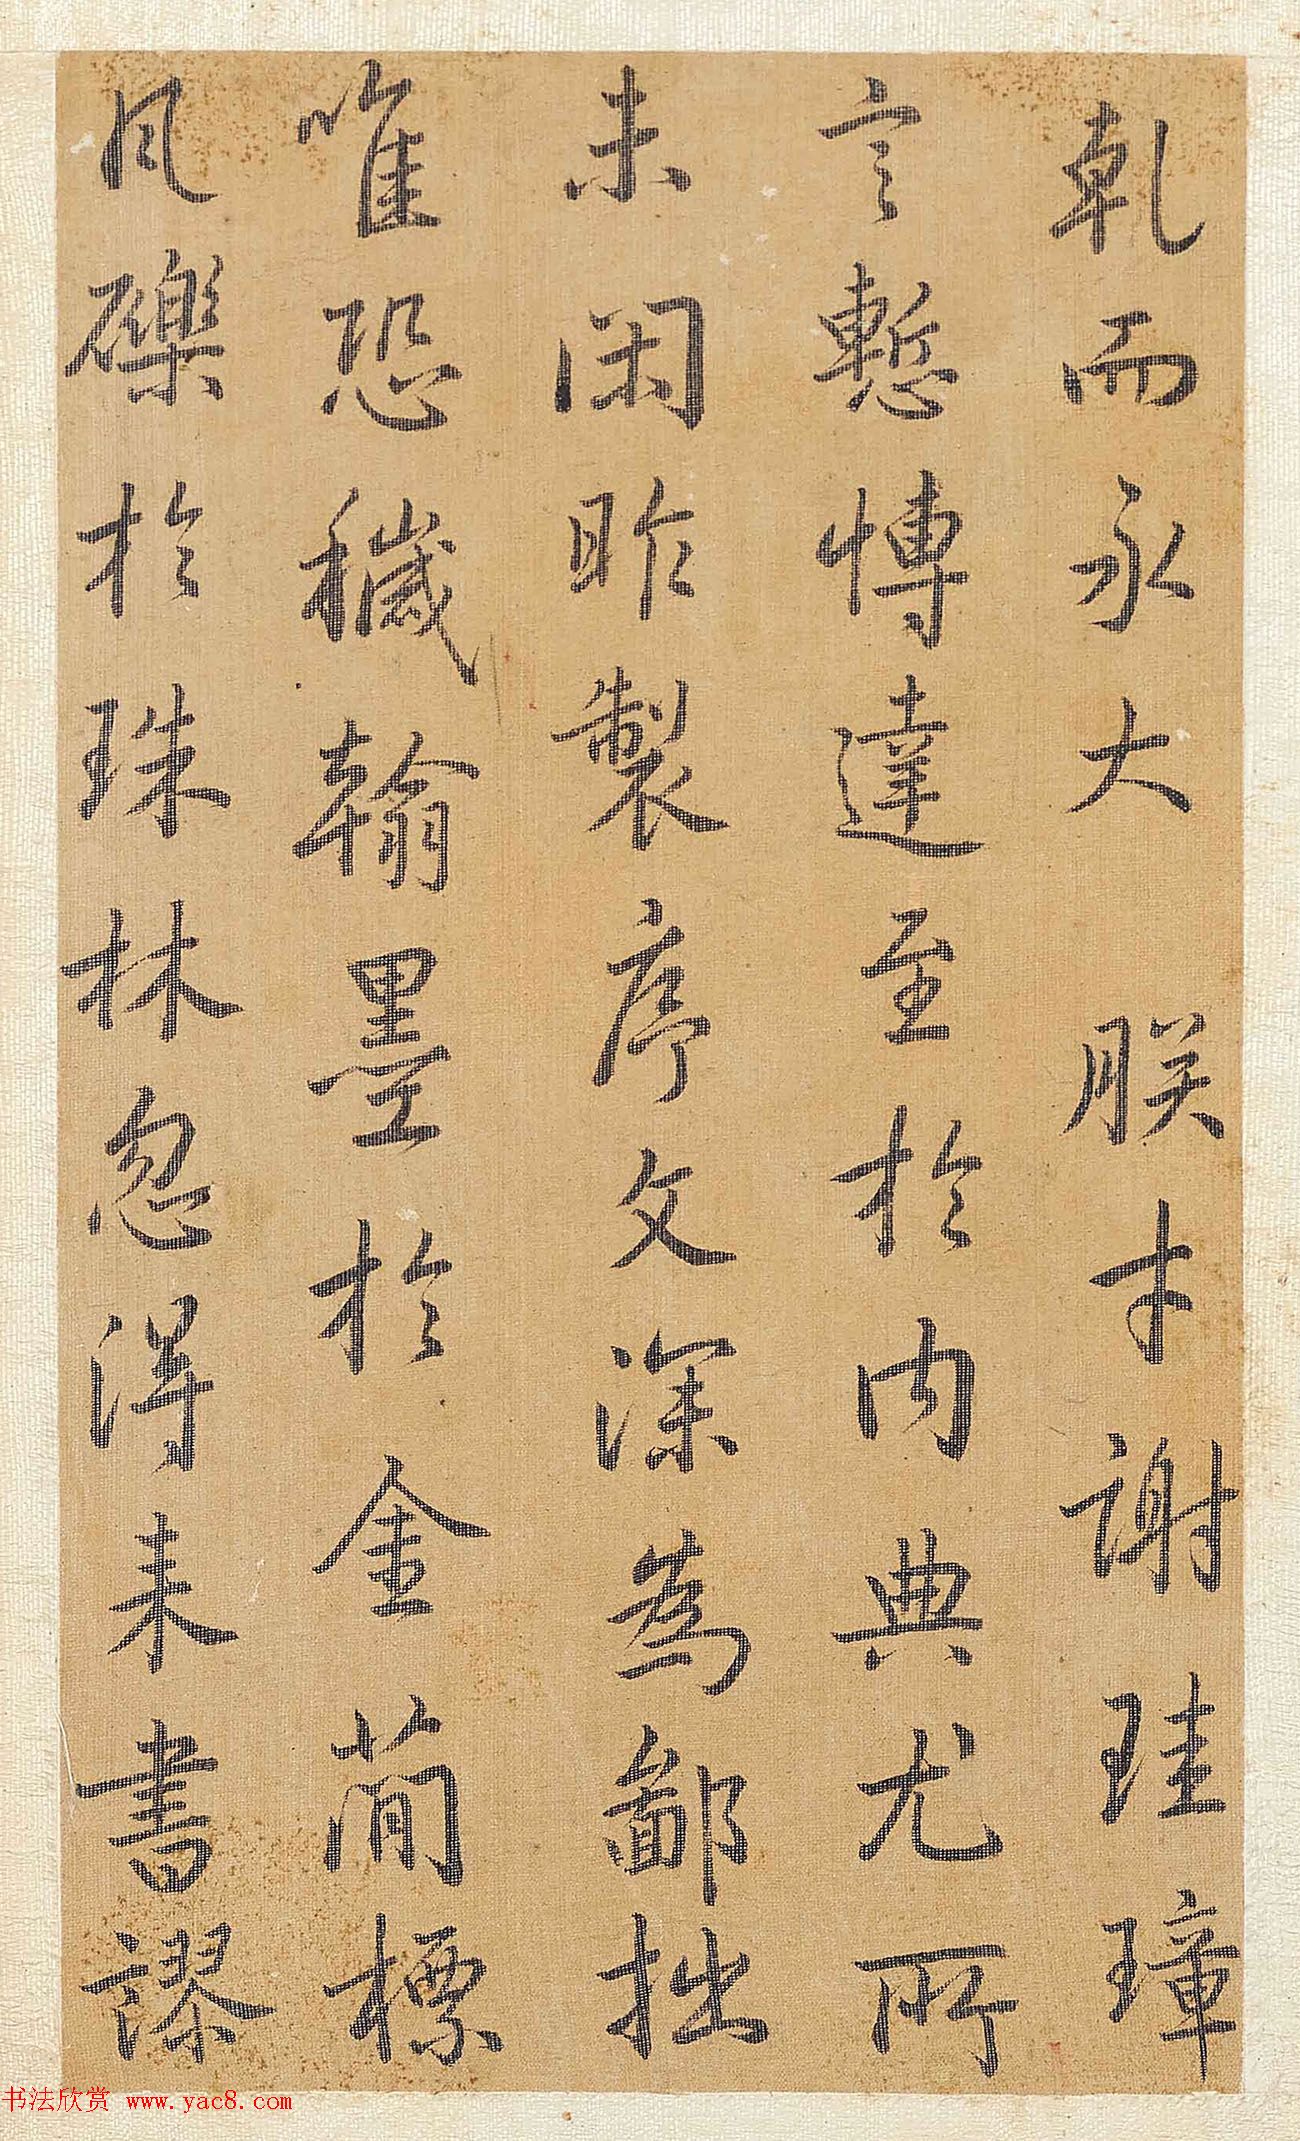 乾而永大朕才謝珪璋
言慙博達至於內典尤所
未閑昨製序文深為鄙拙
唯恐穢翰墨於金簡標
瓦礫於珠林忽得来書謬
书法欣赏 www.yac8.com